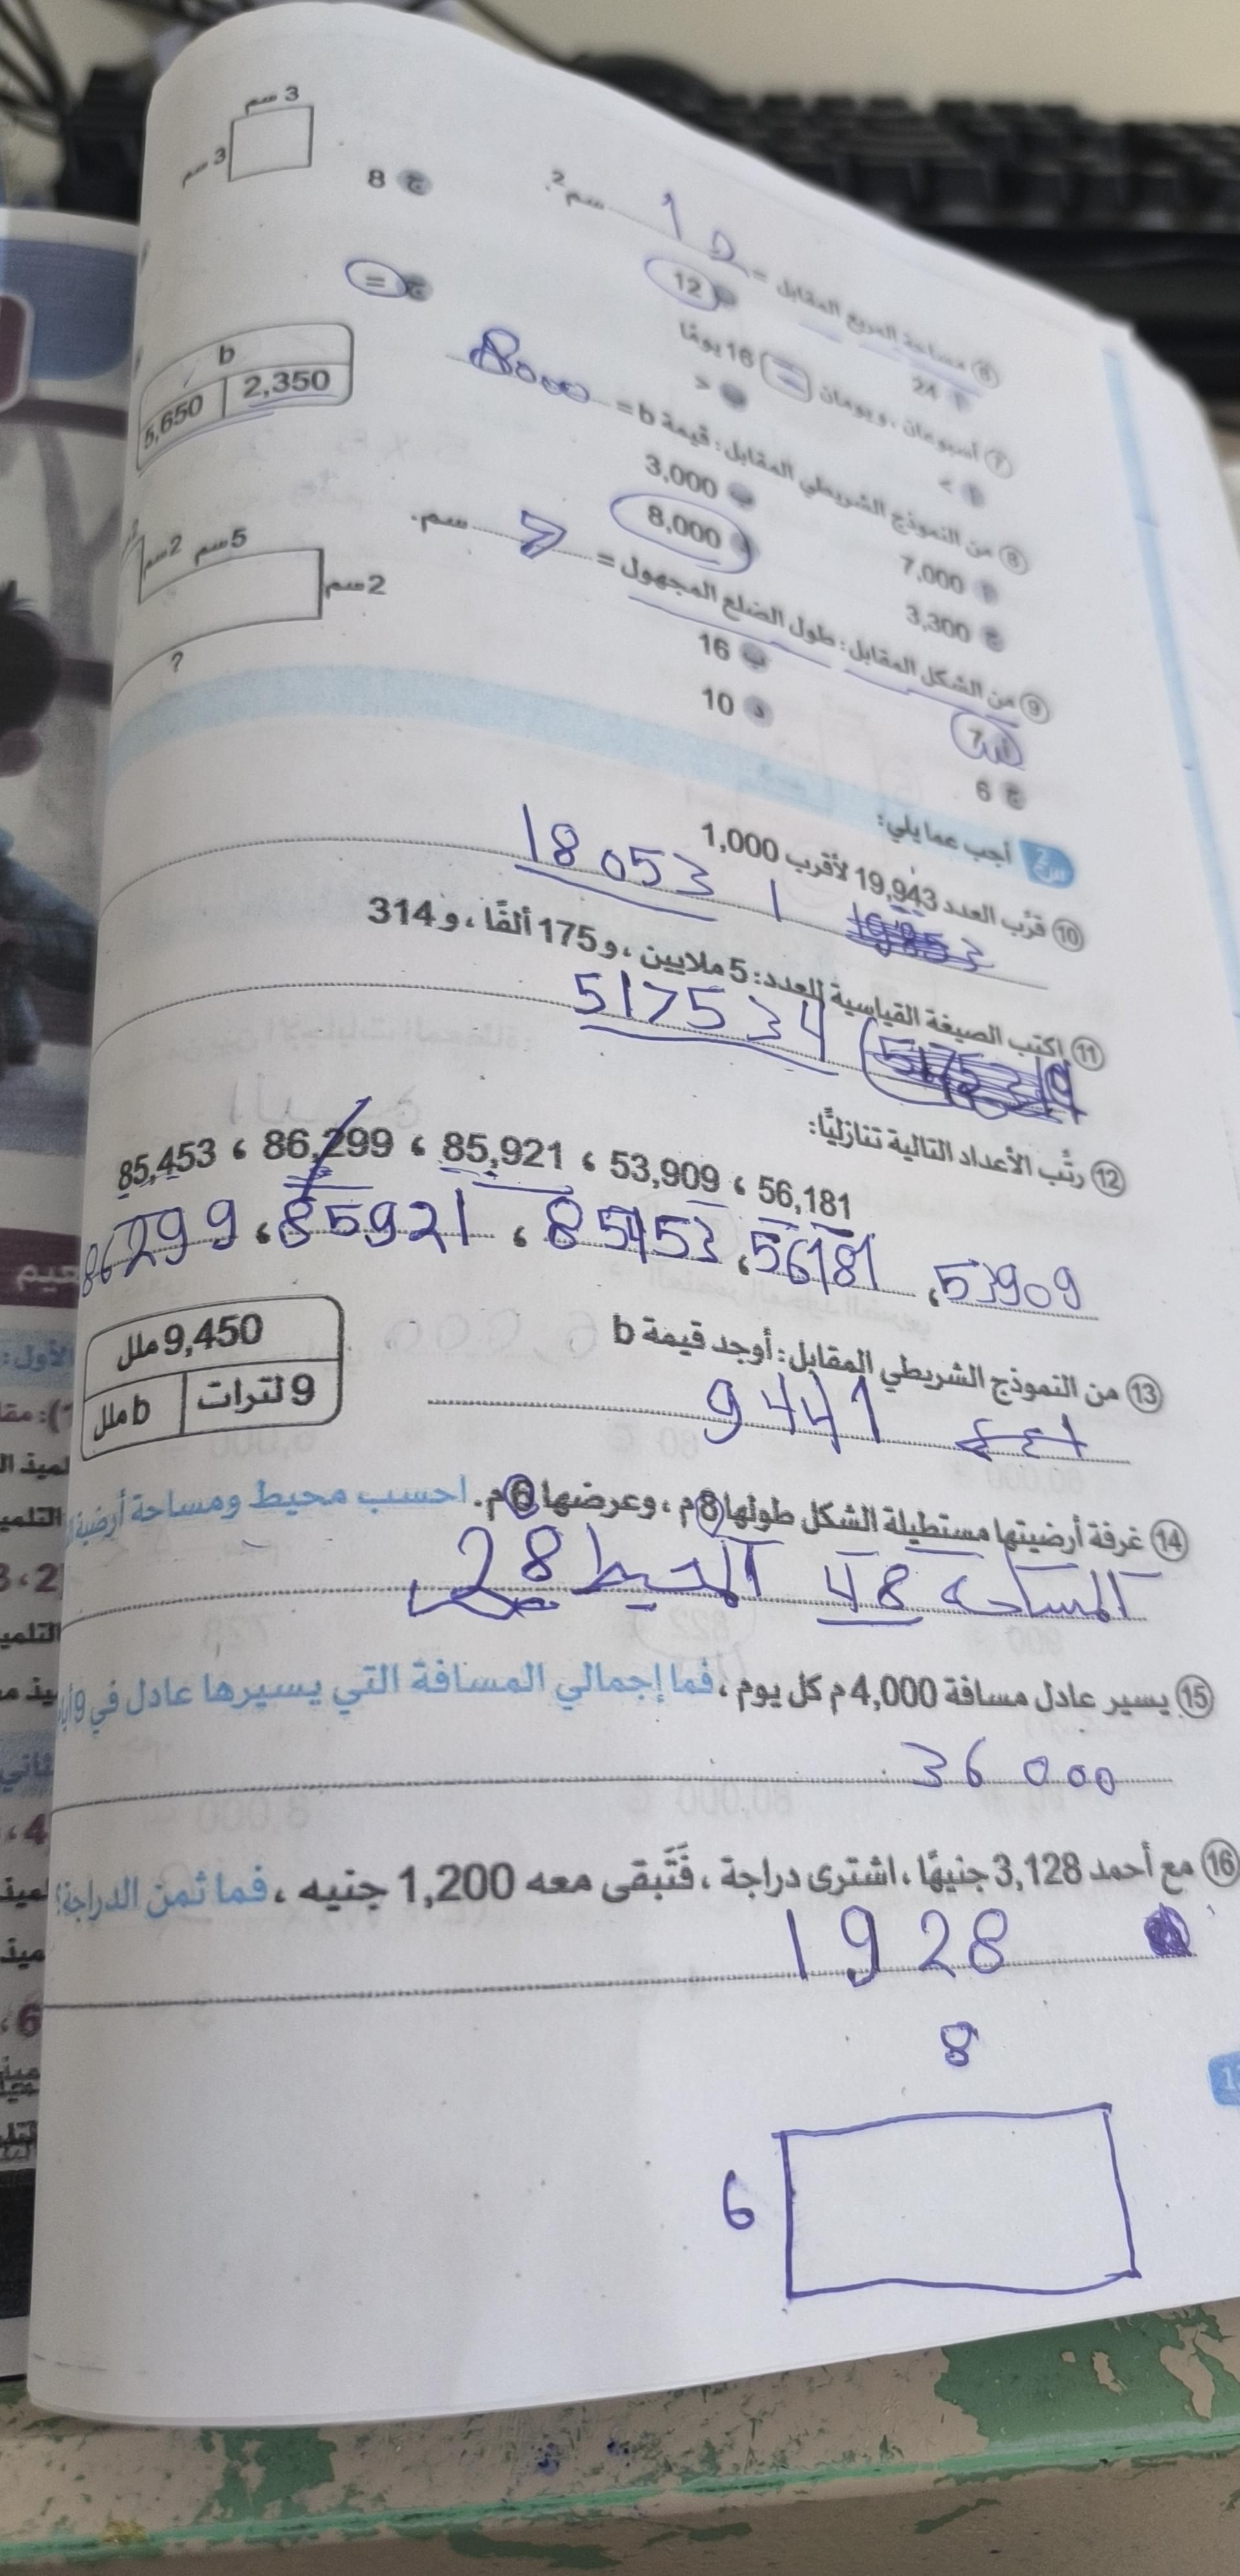 3 سم
3 سم
⑥ مساحة المربع المقابل = ...... سم².
أ 24 ب 12 ج 8
⑦ أسبوعان ، ويومان = 16 يومًا
أ > ب < ج =
⑧ من النموذج الشريطي المقابل: قيمة b = 8000
أ 7,000 ب 3,000
ج 3,300 8,000
b
5,650 2,350
⑨ من الشكل المقابل: طول الضلع المجهول = 7 سم.
أ 7 ب 16
ج 6 د 10
5 سم 2 سم
2 سم
?
2 أجب عما يلي:
⑩ قرِّب العدد 19,943 لأقرب 1,000
18053
⑪ اكتب الصيغة القياسية للعدد: 5 ملايين ، و175 ألفًا ، و314
517534
⑫ رتِّب الأعداد التالية تنازليًّا:
56,181 ، 53,909 ، 85,921 ، 86,299 ، 85,453
86299 ، 85921 ، 85453 ، 56181 ، 53909
⑬ من النموذج الشريطي المقابل: أوجد قيمة b
9441
9,450 ملل
9 لترات b ملل
⑭ غرفة أرضيتها مستطيلة الشكل طولها 8 م ، وعرضها 6 م. احسب محيط ومساحة أرضية
المساحة 48 المحيط 28
⑮ يسير عادل مسافة 4,000 م كل يوم ، فما إجمالي المسافة التي يسيرها عادل في 9
36000
⑯ مع أحمد 3,128 جنيهًا ، اشترى دراجة ، فَتَبقى معه 1,200 جنيه ، فما ثمن الدراجة؟
1928
8
6